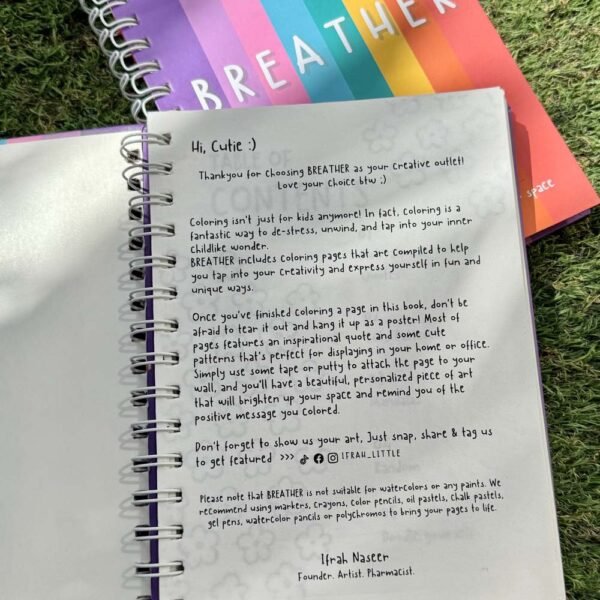 BREATHER
space
Hi, Cutie :)
Thankyou for choosing BREATHER as your creative outlet!
Love your choice btw ;)
Coloring isn't just for kids anymore! In fact, Coloring is a
fantastic way to de-stress, unwind, and tap into your inner
childlike wonder.
BREATHER includes coloring pages that are compiled to help
you tap into your creativity and express yourself in fun and
unique ways.
Once you've finished coloring a page in this book, don't be
afraid to tear it out and hang it up as a poster! Most of
pages features an inspirational quote and some cute
patterns that's perfect for displaying in your home or office.
Simply use some tape or putty to attach the page to your
wall, and you'll have a beautiful, personalized piece of art
that will brighten up your space and remind you of the
positive message you colored.
Don't forget to show us your art, Just snap, share & tag us
to get featured >>> IFRAH_LITTLE
Please note that BREATHER is not suitable for watercolors or any paints. We
recommend using markers, crayons, color pencils, oil pastels, chalk pastels,
gel pens, watercolor pancils or polychromos to bring your pages to life.
Ifrah Naseer
Founder. Artist. Pharmacist.